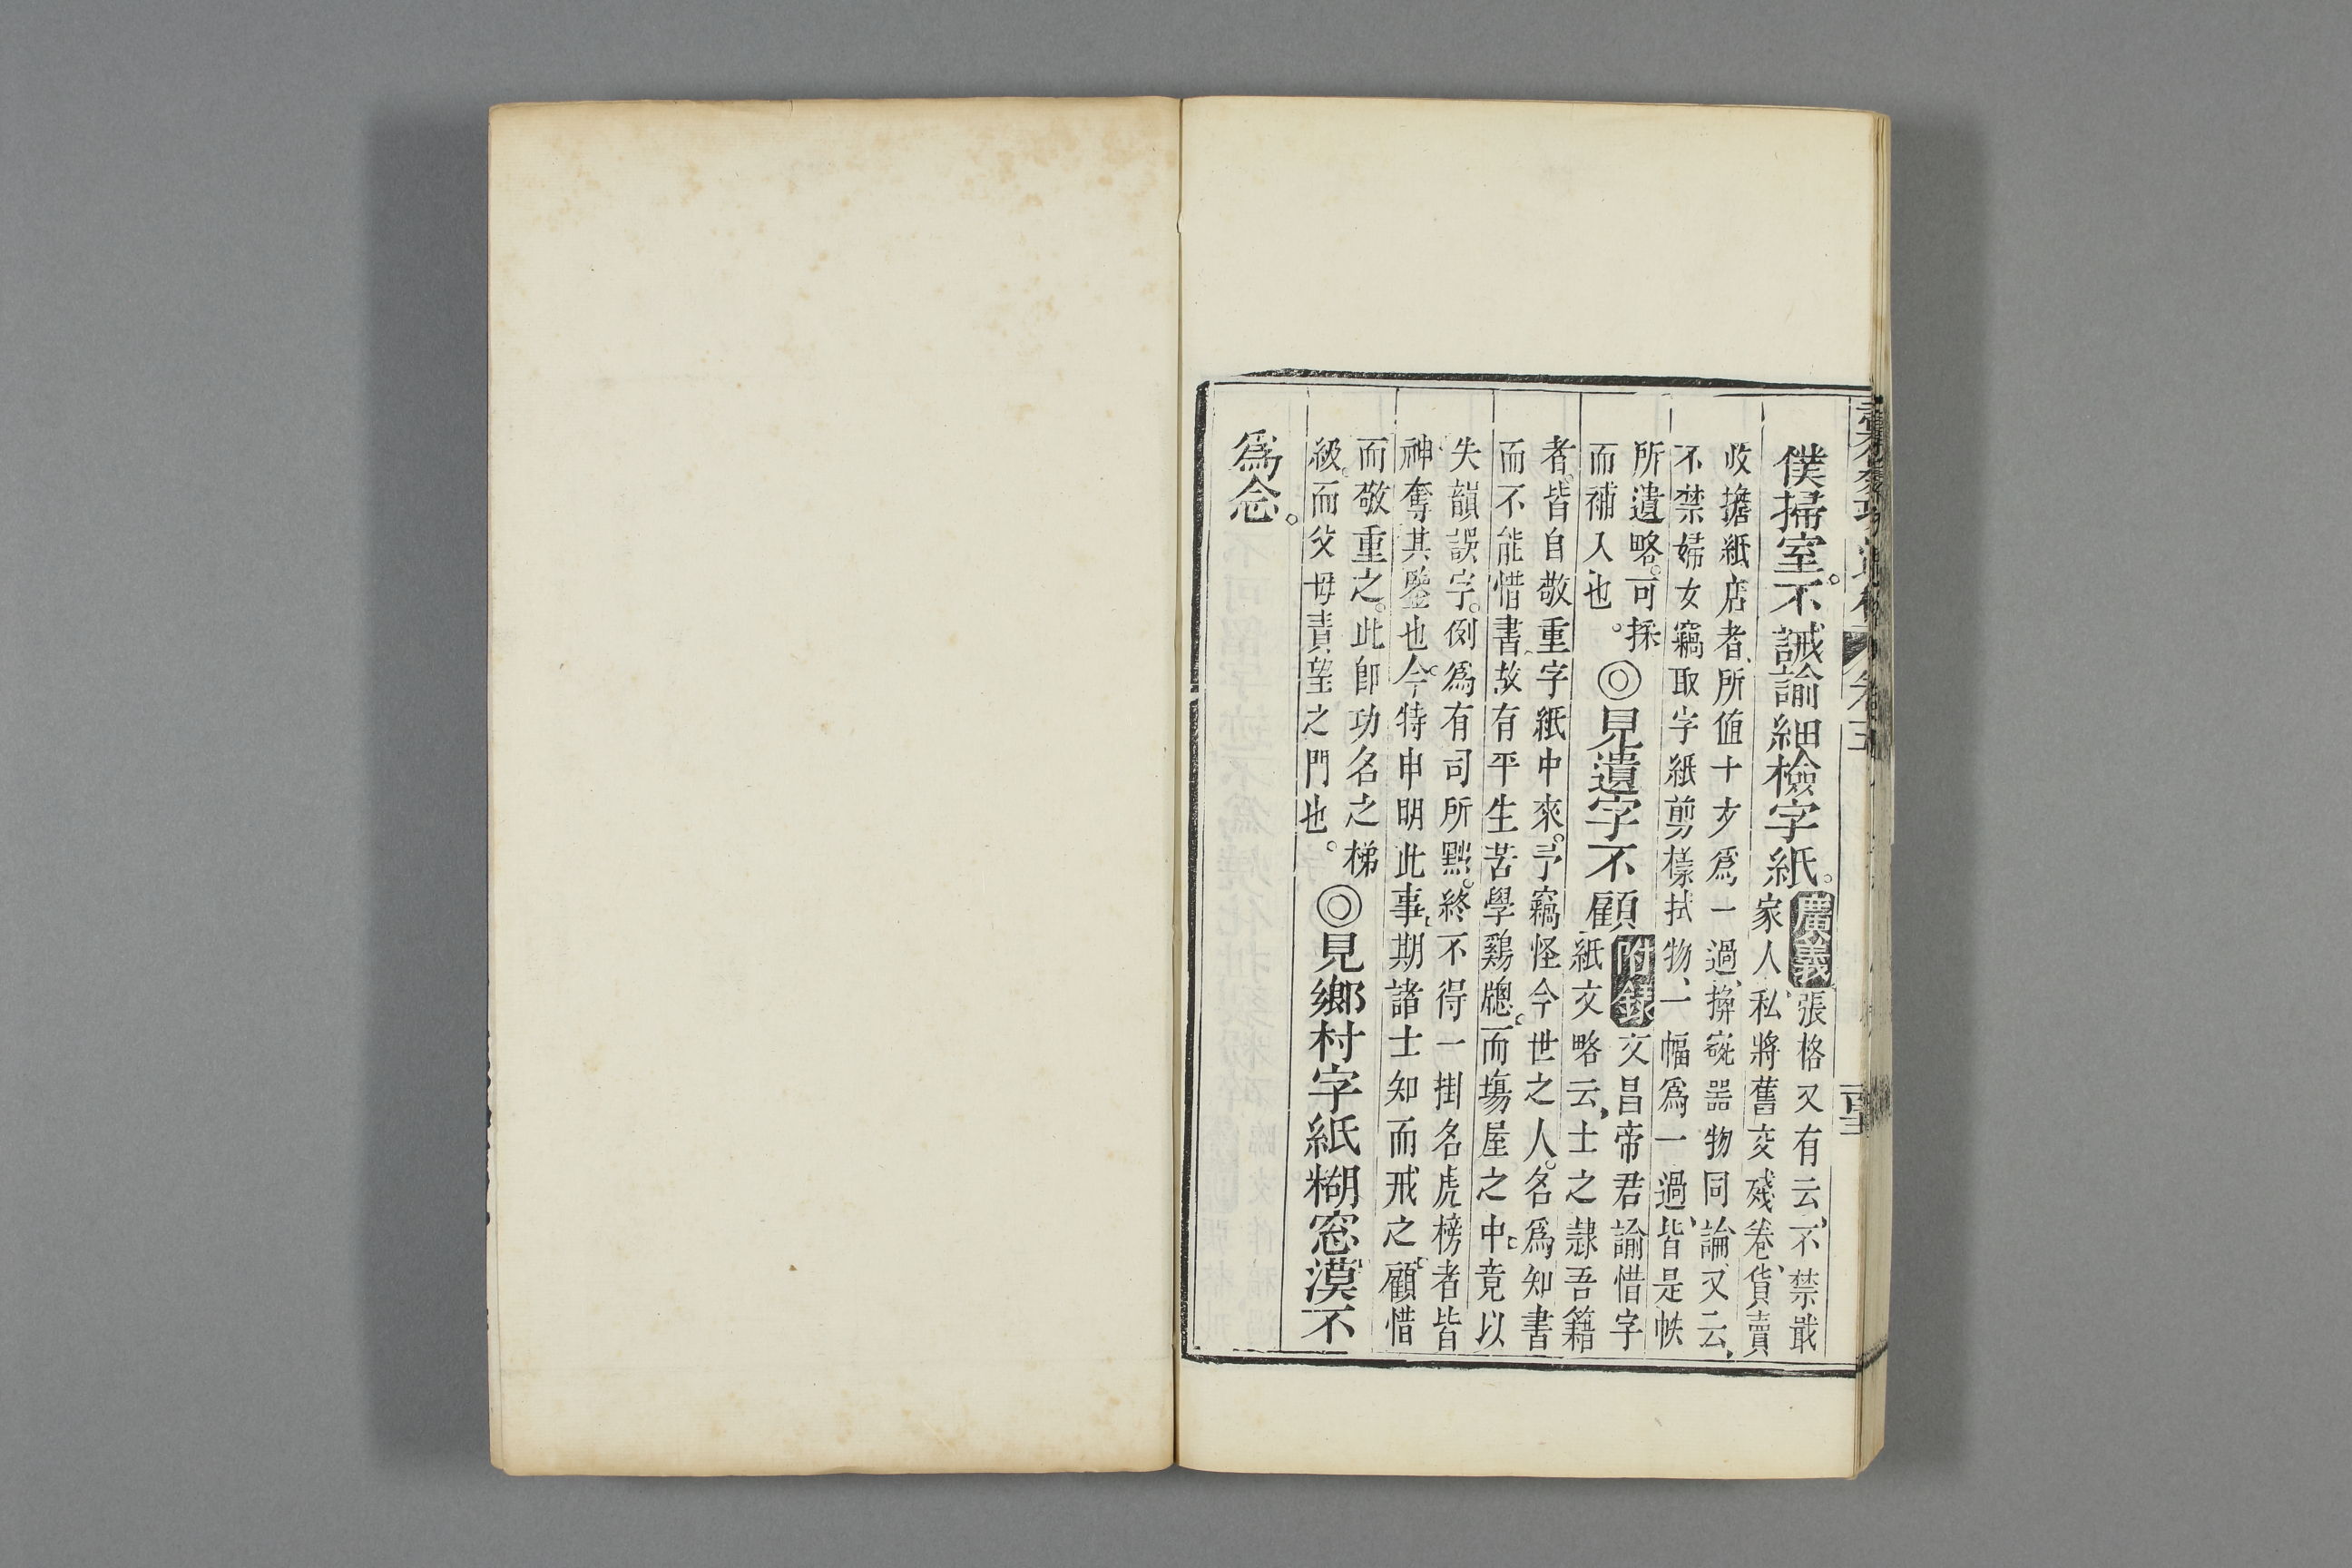 僕掃室。不誡諭細檢字紙。廣義張格又有云、不禁戢
家人、私將舊文殘卷、貨賣
收擔紙店者、所値十文爲一過、擲毀器物同論、又云、
不禁婦女竊取字紙剪樣拭物、一幅爲一過、皆是帙
所遺略。可採
而補入也。◎見遺字不顧附錄文昌帝君諭惜字
紙文略云、士之隷吾籍
者。皆自敬重字紙中來。予竊怪今世之人。名爲知書
而不能惜書、故有平生苦學鷄牕。而塲屋之中、竟以
失韻誤字。例爲有司所黜。終不得一掛名虎榜者皆
神奪其鑒也。今特申明此事、期諸士知而戒之、顧惜
而敬重之。此卽功名之梯
級。而父母責望之門也。◎見鄉村字紙糊窓、漠不
爲念。